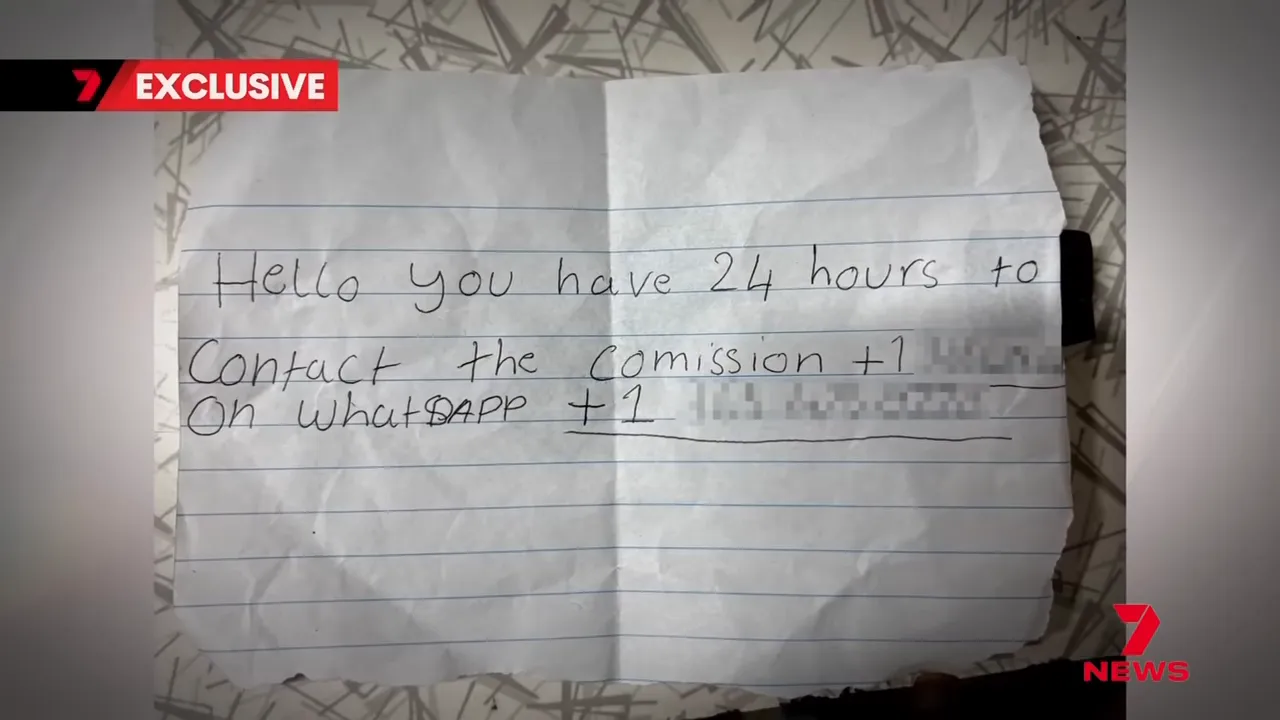 7 EXCLUSIVE
Hello you have 24 hours to
Contact the comission +1
On WhatsAPP +1
7
NEWS